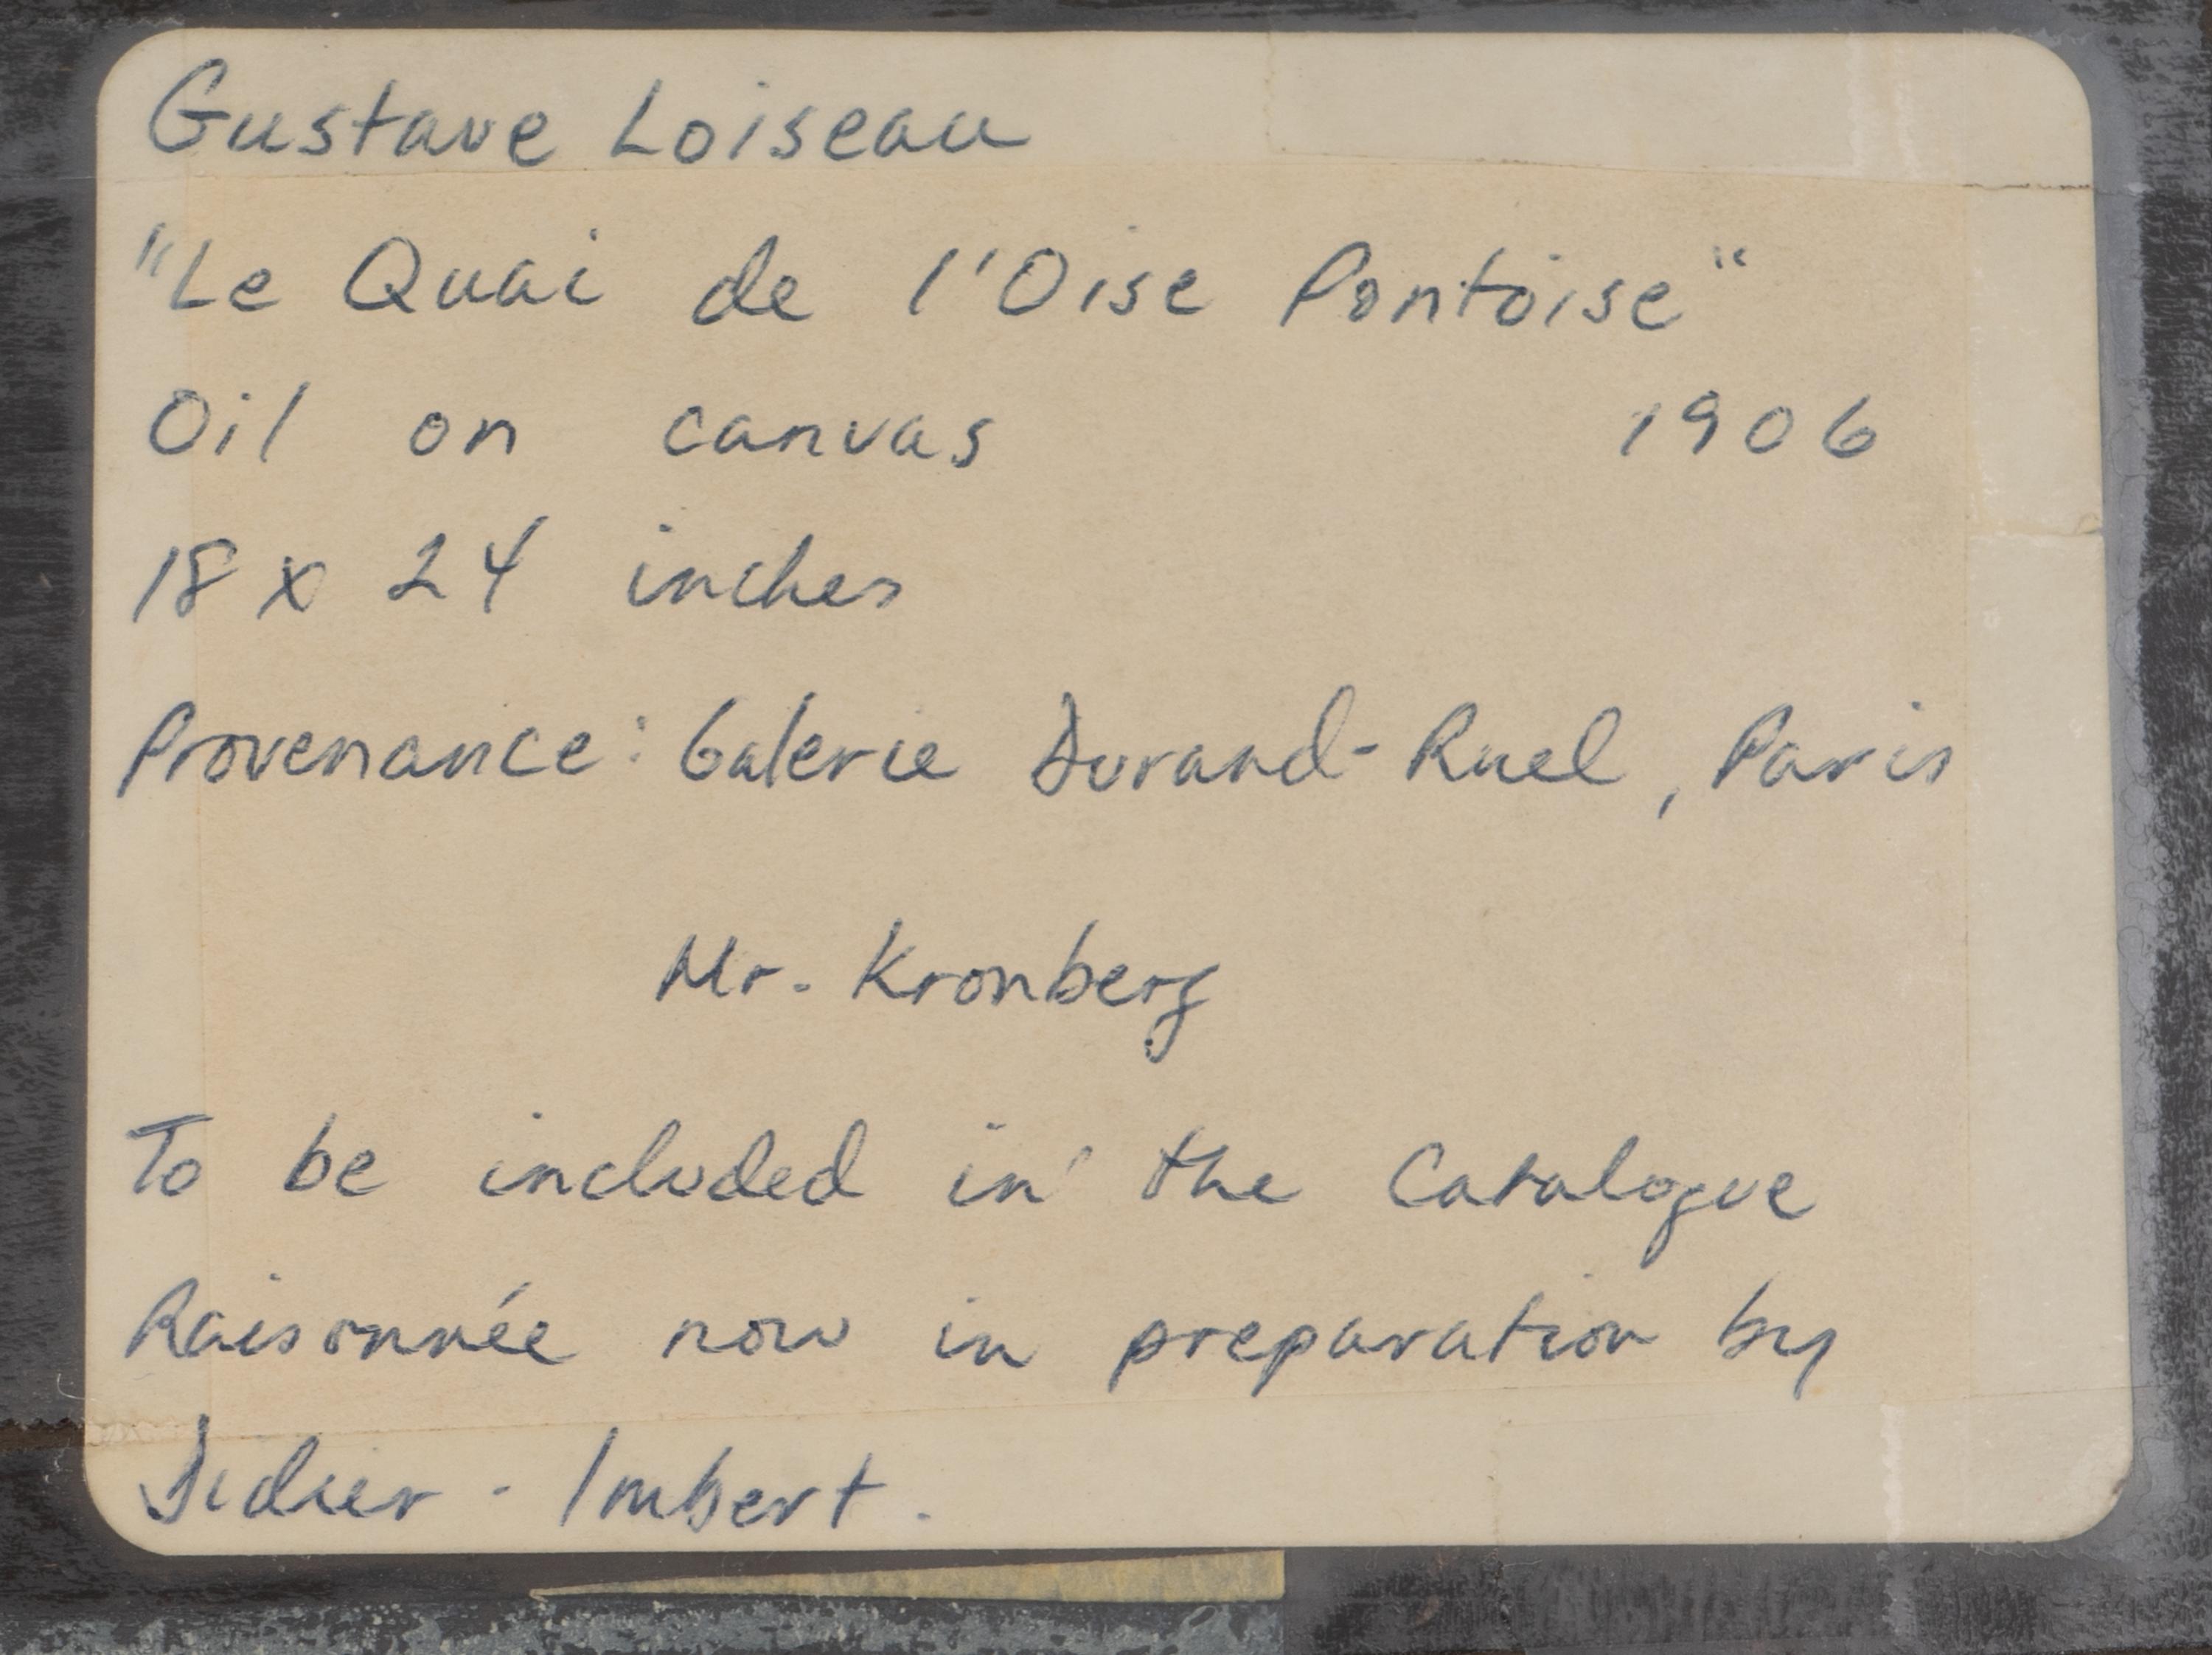 Gustave Loiseau
"Le Quai de l'Oise Pontoise"
Oil on canvas 1906
18 x 24 inches
Provenance: Galerie Durand-Ruel, Paris
Mr. Kronberg
To be included in the Catalogue
Raisonnée now in preparation by
Didier - Imbert.